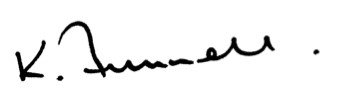 K. Funnell.